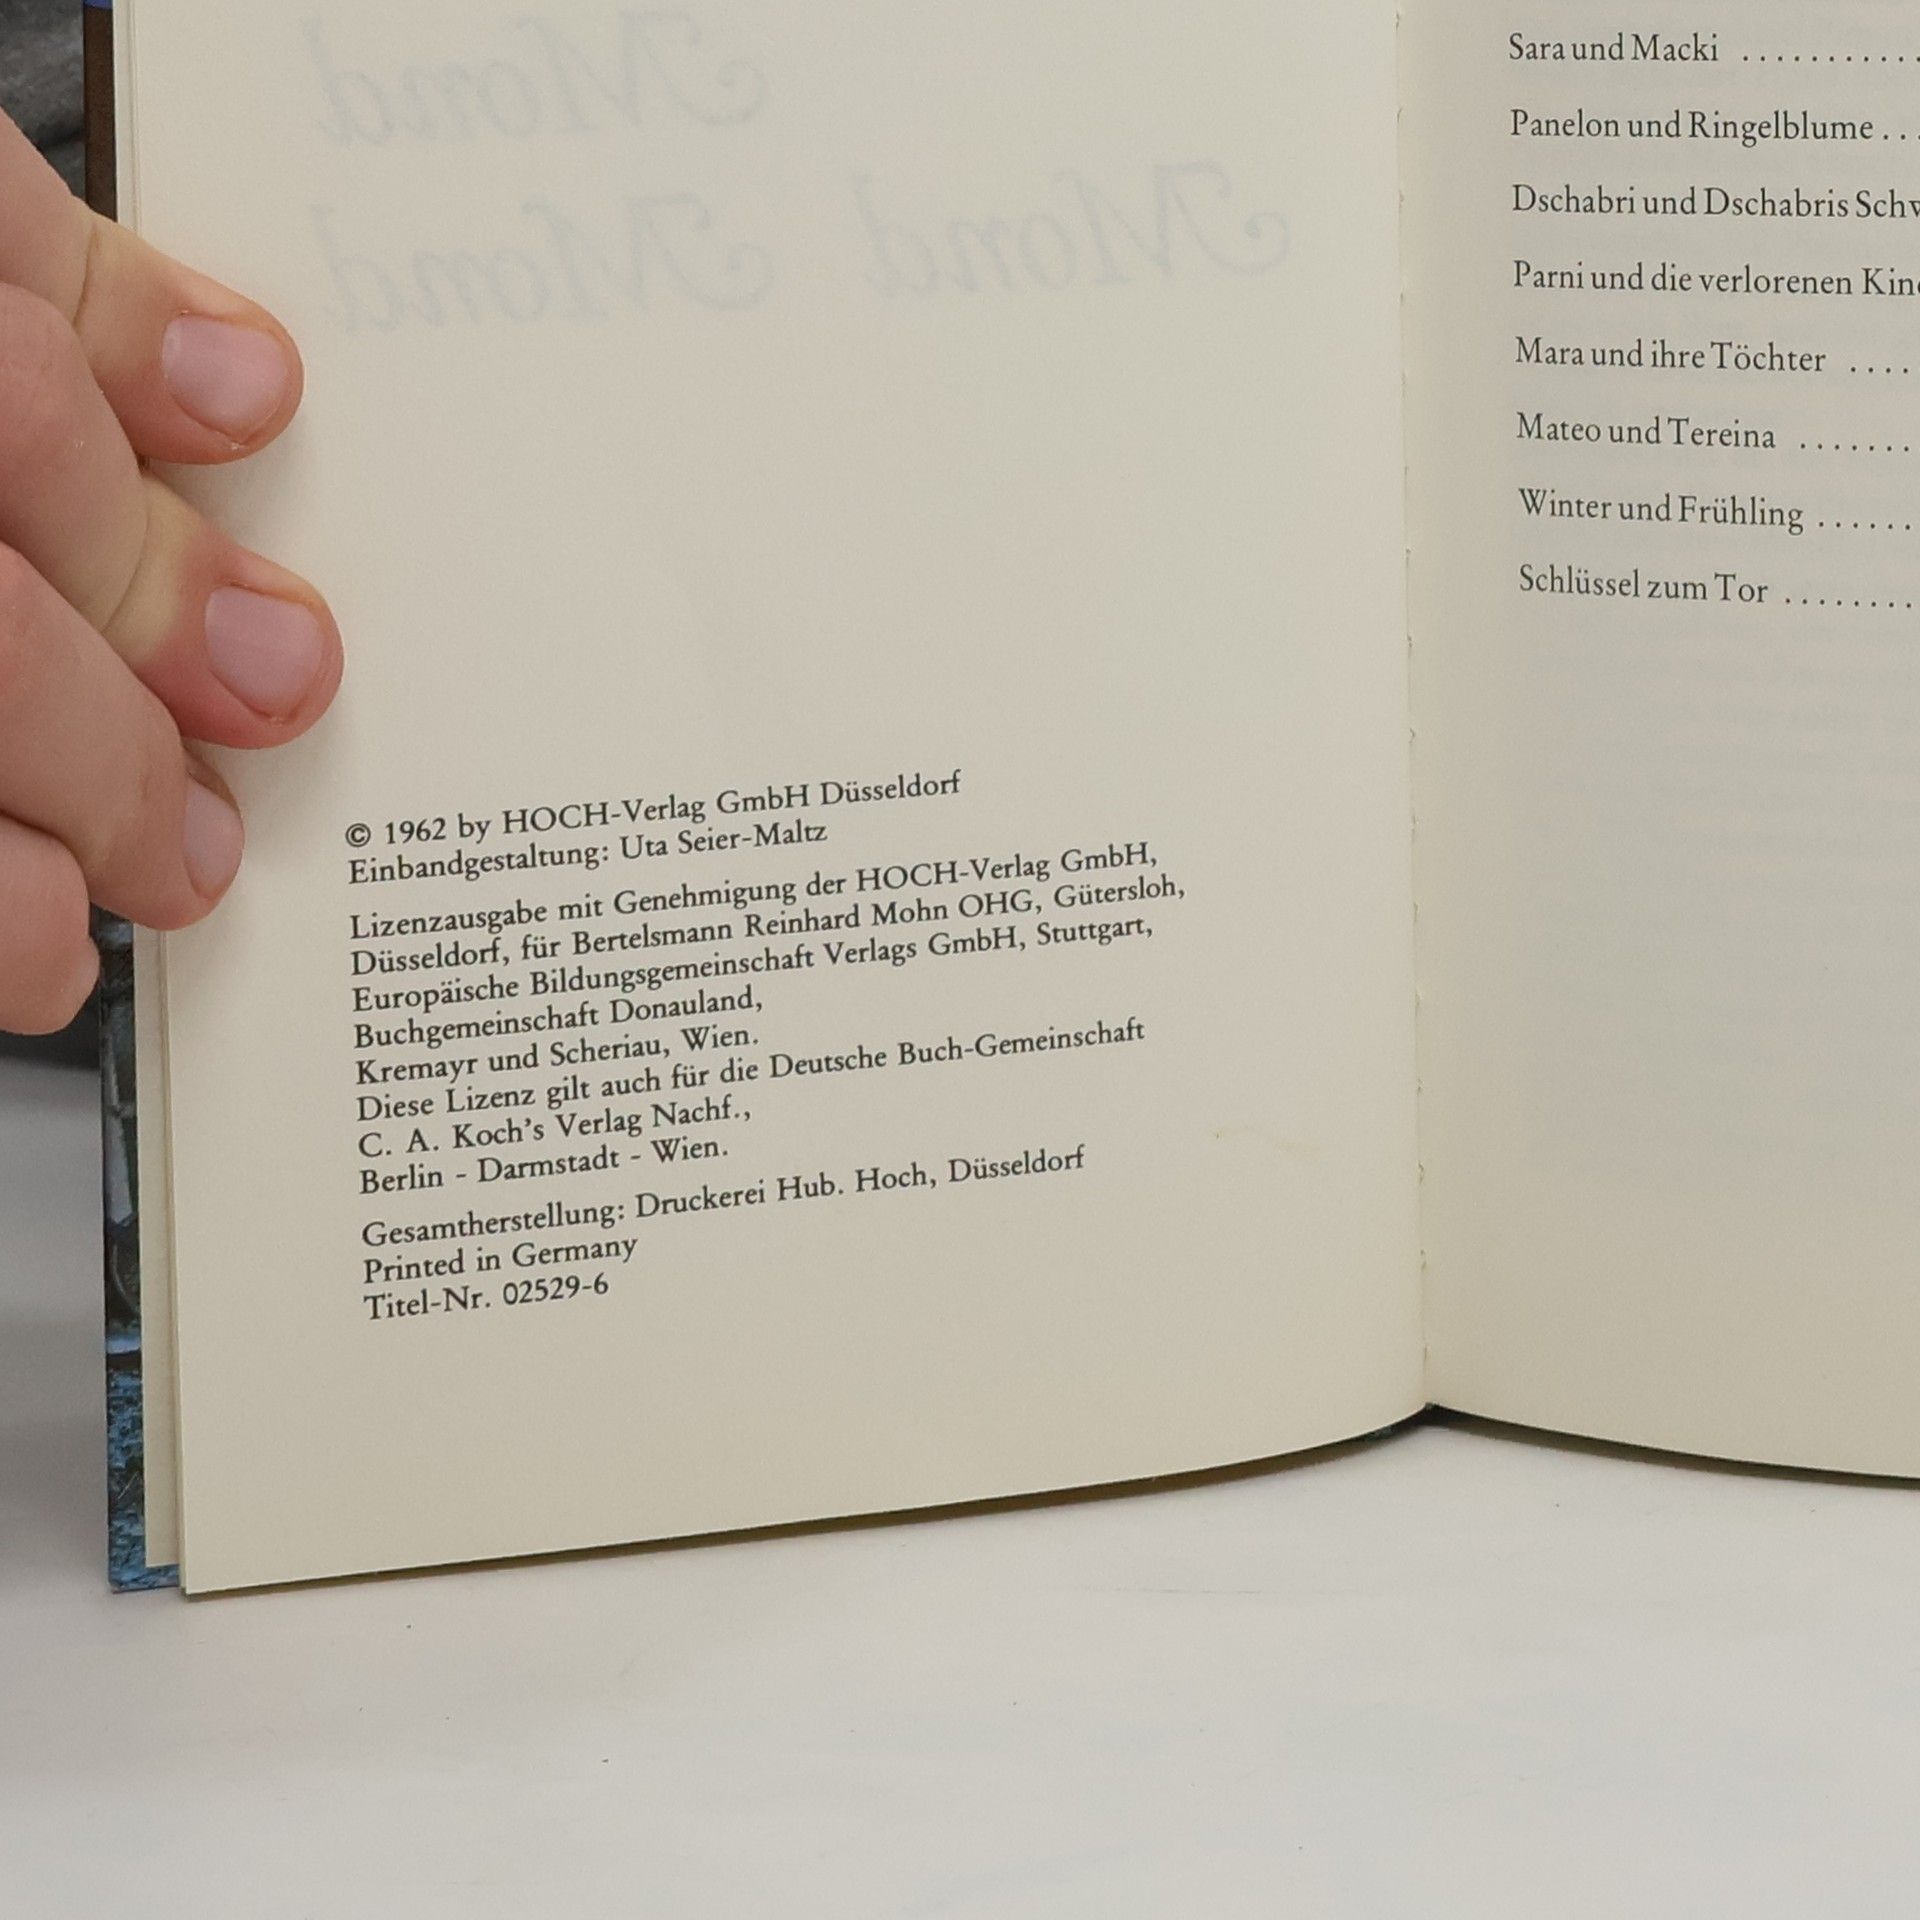 Mond
Mond Mond
© 1962 by HOCH-Verlag GmbH Düsseldorf
Einbandgestaltung: Uta Seier-Maltz
Lizenzausgabe mit Genehmigung der HOCH-Verlag GmbH,
Düsseldorf, für Bertelsmann Reinhard Mohn OHG, Gütersloh,
Europäische Bildungsgemeinschaft Verlags GmbH, Stuttgart,
Buchgemeinschaft Donauland,
Kremayr und Scheriau, Wien.
Diese Lizenz gilt auch für die Deutsche Buch-Gemeinschaft
C. A. Koch's Verlag Nachf.,
Berlin - Darmstadt - Wien.
Gesamtherstellung: Druckerei Hub. Hoch, Düsseldorf
Printed in Germany
Titel-Nr. 02529-6
Sara und Macki ...........
Panelon und Ringelblume ...
Dschabri und Dschabris
Parni und die verlorenen
Mara und ihre Töchter ....
Mateo und Tereina .......
Winter und Frühling ......
Schlüssel zum Tor ........